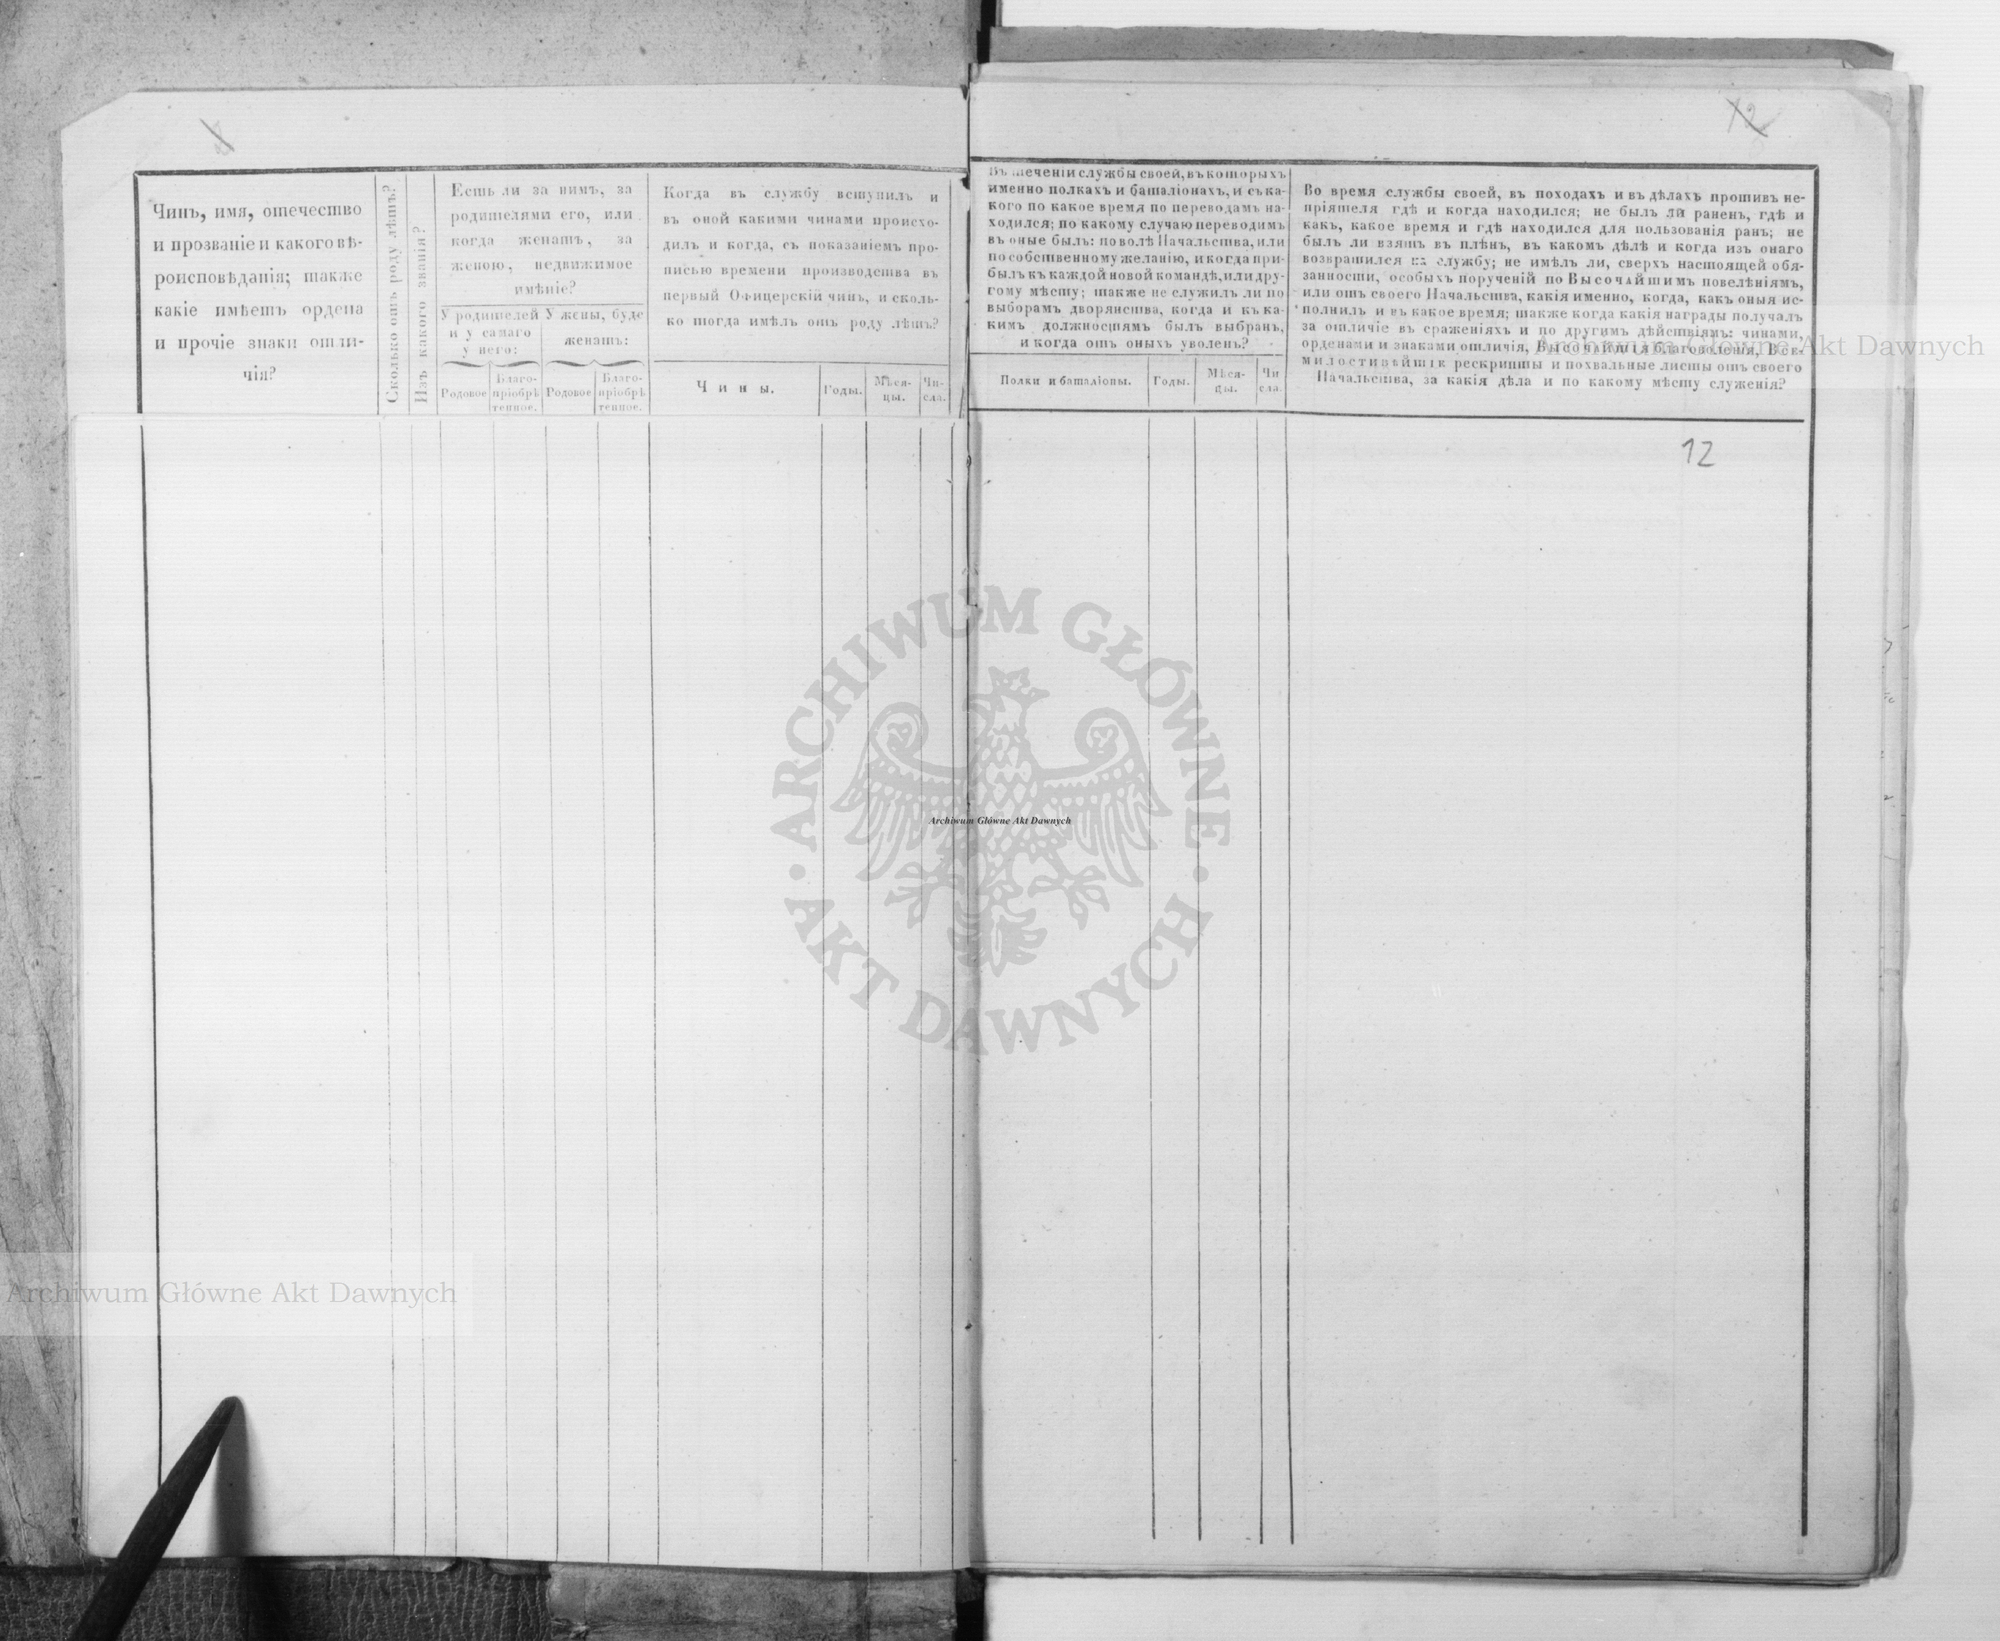 Чинъ, имя, отечество
и прозваніе и какого вѣ-
роисповѣданія; также
какіе имѣетъ ордена
и прочіе знаки отли-
чія?
Сколько отъ роду лѣтъ?
Изъ какого званія?
Есть ли за нимъ, за
родителями его, или
когда женатъ, за
женою, недвижимое
имѣніе?
У родителей
и у самаго
у него:
У жены, буде
женатъ:
Родовое
Благо-
пріобрѣ
тенное.
Родовое
Благо-
пріобрѣ
тенное.
Когда въ службу вступилъ и
въ оной какими чинами происхо-
дилъ и когда, съ показаніемъ про-
писью времени производства въ
первый Офицерскій чинъ, и сколь-
ко тогда имѣлъ отъ роду лѣтъ?
Чины.
Годы.
Мѣся-
цы.
Чи-
сла.
Въ теченіи службы своей, въ которыхъ
именно полкахъ и баталіонахъ, и съ ка-
кого по какое время по переводамъ на-
ходился; по какому случаю переводимъ
въ оные былъ: по волѣ Начальства, или
по собственному желанію, и когда при-
былъ къ каждой новой командѣ, или дру-
гому мѣсту; также не служилъ ли по
выборамъ дворянства, когда и къ ка-
кимъ должностямъ былъ выбранъ,
и когда отъ оныхъ уволенъ?
Полки и баталіоны.
Годы.
Мѣся-
цы.
Чи
сла.
Во время службы своей, въ походахъ и въ дѣлахъ противъ не-
пріятеля гдѣ и когда находился; не былъ ли раненъ, гдѣ и
какъ, какое время и гдѣ находился для пользованія ранъ; не
былъ ли взятъ въ плѣнъ, въ какомъ дѣлѣ и когда изъ онаго
возвратился на службу; не имѣлъ ли, сверхъ настоящей обя-
занности, особыхъ порученій по Высочайшимъ повелѣніямъ,
или отъ своего Начальства, какія именно, когда, какъ оныя ис-
полнилъ и въ какое время; также когда какія награды получалъ
за отличіе въ сраженіяхъ и по другимъ дѣйствіямъ: чинами,
орденами и знаками отличія, Высочайшія благоволенія, Все-
милостивѣйшіе рескрипты и похвальные листы отъ своего
Начальства, за какія дѣла и по какому мѣсту служенія?
12
Archiwum Główne Akt Dawnych
ARCHIWUM GŁÓWNE
AKT DAWNYCH
Archiwum Główne Akt Dawnych
Archiwum Główne Akt Dawnych